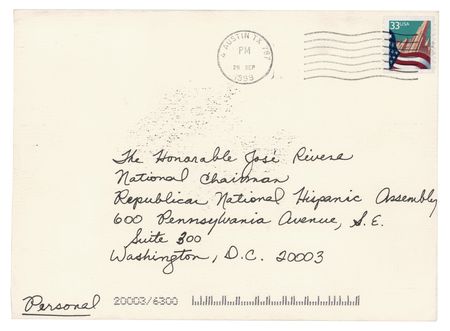 33 USA
AUSTIN TX 787
PM
26 SEP
1999
The Honorable José Rivera
National Chairman
Republican National Hispanic Assembly
600 Pennsylvania Avenue, S.E.
Suite 300
Washington, D.C. 20003
Personal 20003/6300